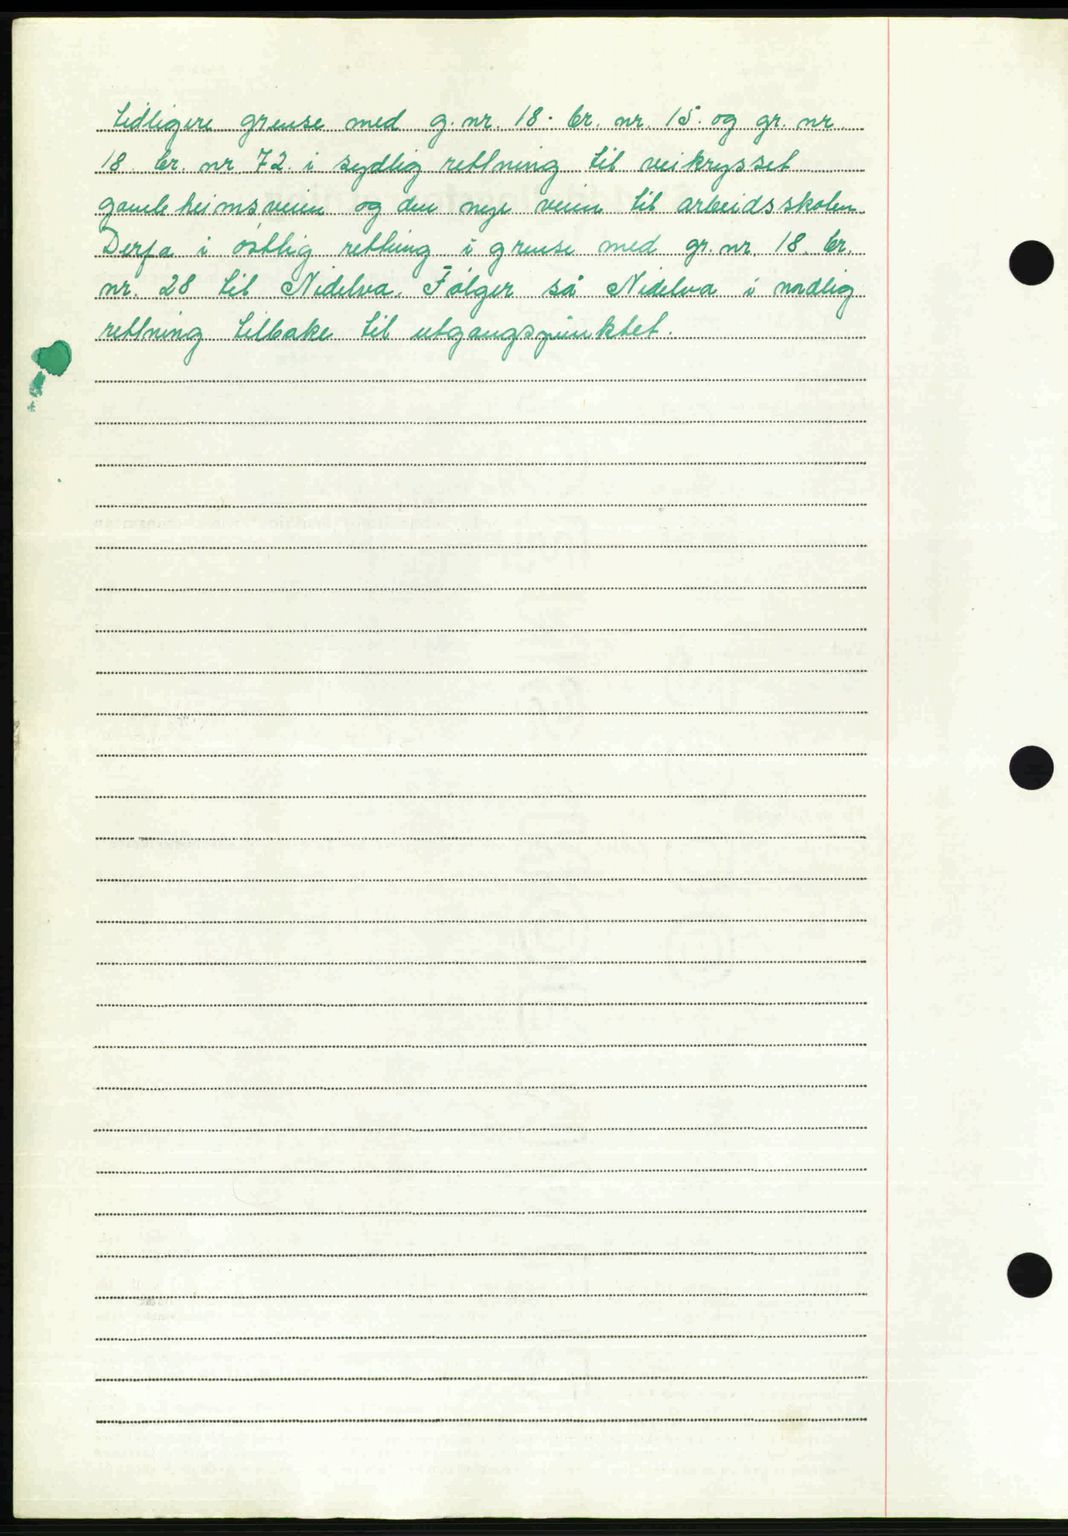 tidligere grense med g. nr. 18. br. nr. 15. og gr. nr.
18. br. nr 72. i sydlig rettning til veikrysset
gamleheimsveien og den nye veien til arbeidsskolen.
Derfa i östlig rettning i grense med gr. nr. 18. br.
nr. 28 til Nidelva. Fölger så Nidelva i nordlig
rettning tilbake til utgangspunktet.